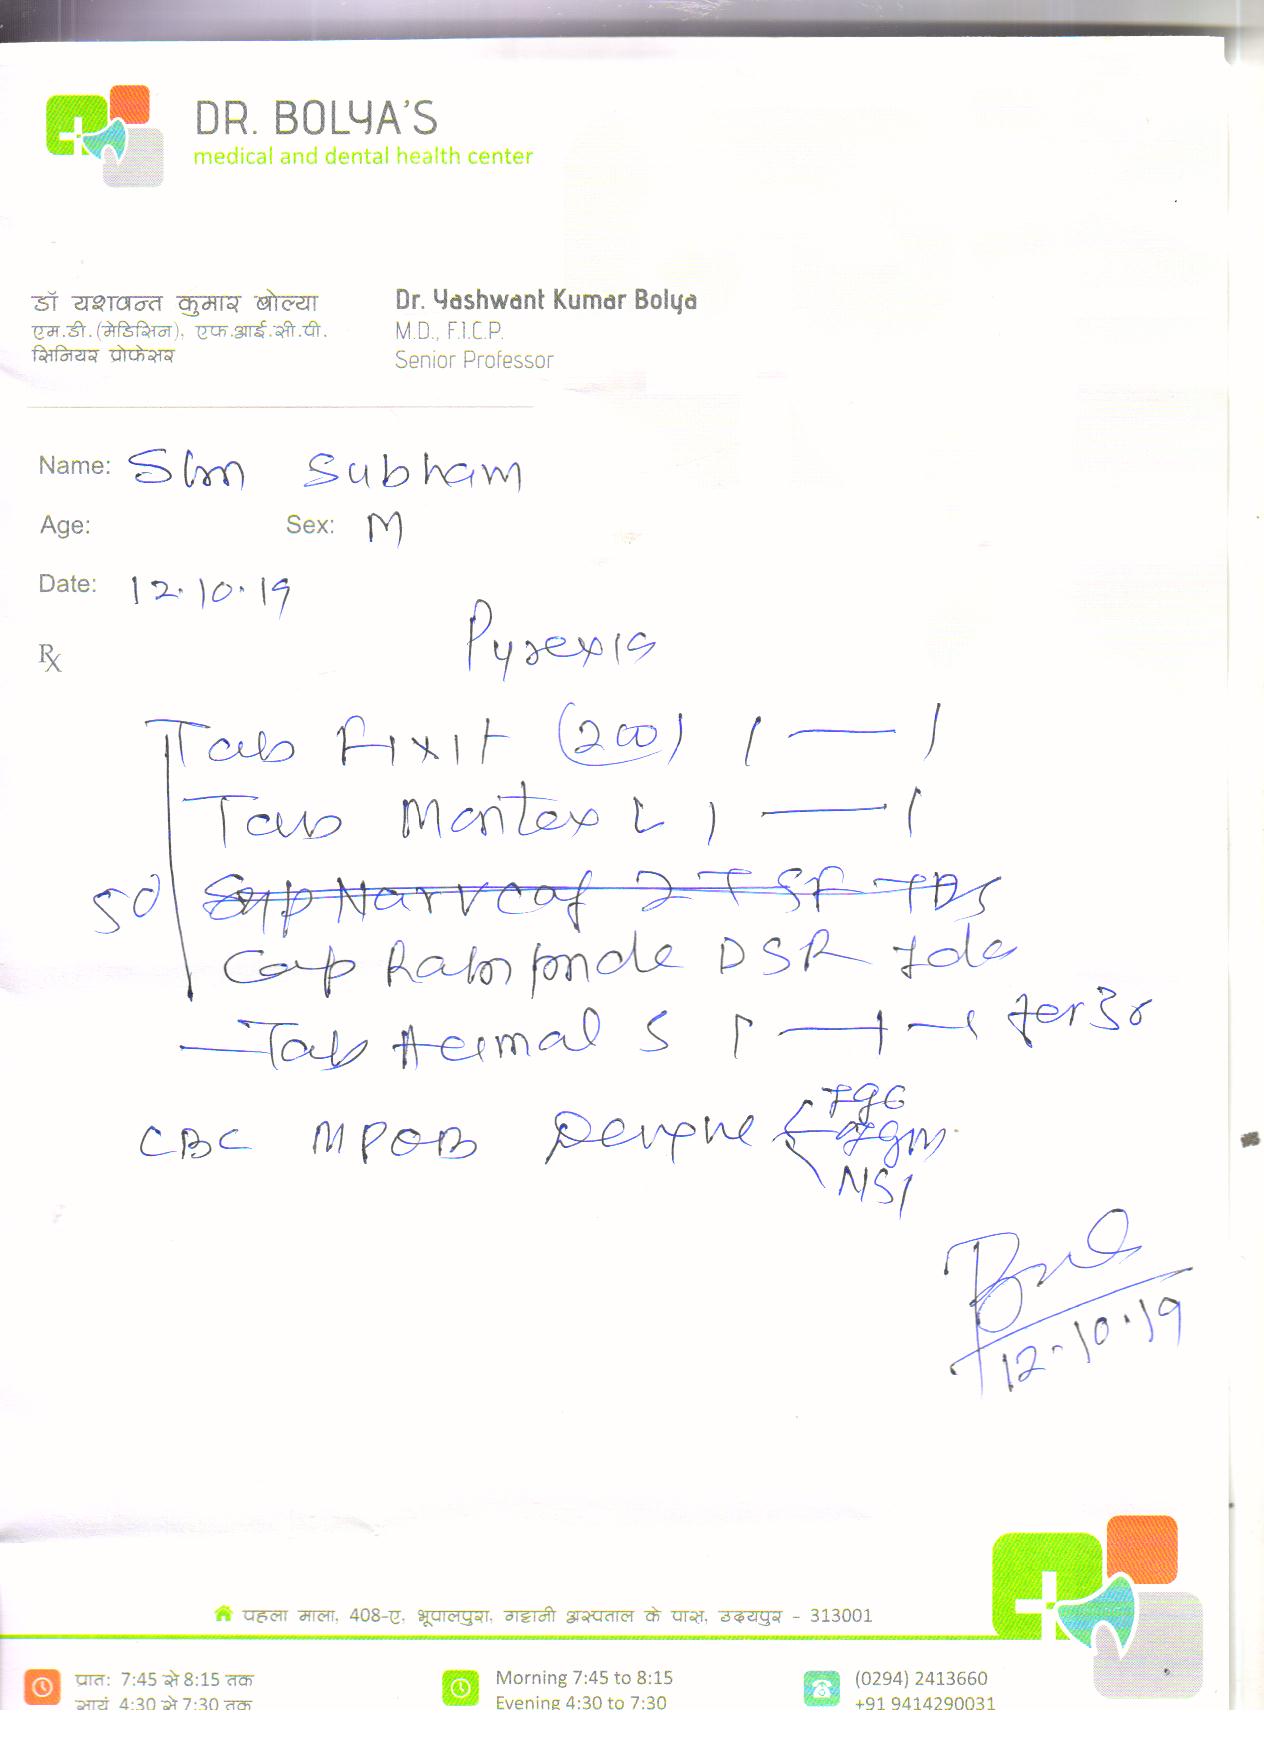 DR. BOLYA'S
medical and dental health center
डॉ यशवन्त कुमार बोल्या
एम.डी.(मेडिसिन), एफ.आई.सी.पी.
सिनियर प्रोफेसर
Dr. Yashwant Kumar Bolya
M.D., F.I.C.P.
Senior Professor
Name: Subham
Age: Sex: M
Date: 12.10.19
Rx
Pyrexia
Tab Fixit (200) 1 — 1
Tab Montex L 1 — 1
5d
2 TSF TDS
Cap DSR
Tab 1 — 1 — 1 for 3
CBC MPQB Dengue IgG
IgM
NS1
12.10.19
पहला माला, 408-ए, भूपालपुरा, गट्टानी अस्पताल के पास, उदयपुर - 313001
प्रात: 7:45 से 8:15 तक
सायं 4:30 से 7:30 तक
Morning 7:45 to 8:15
Evening 4:30 to 7:30
(0294) 2413660
+91 9414290031